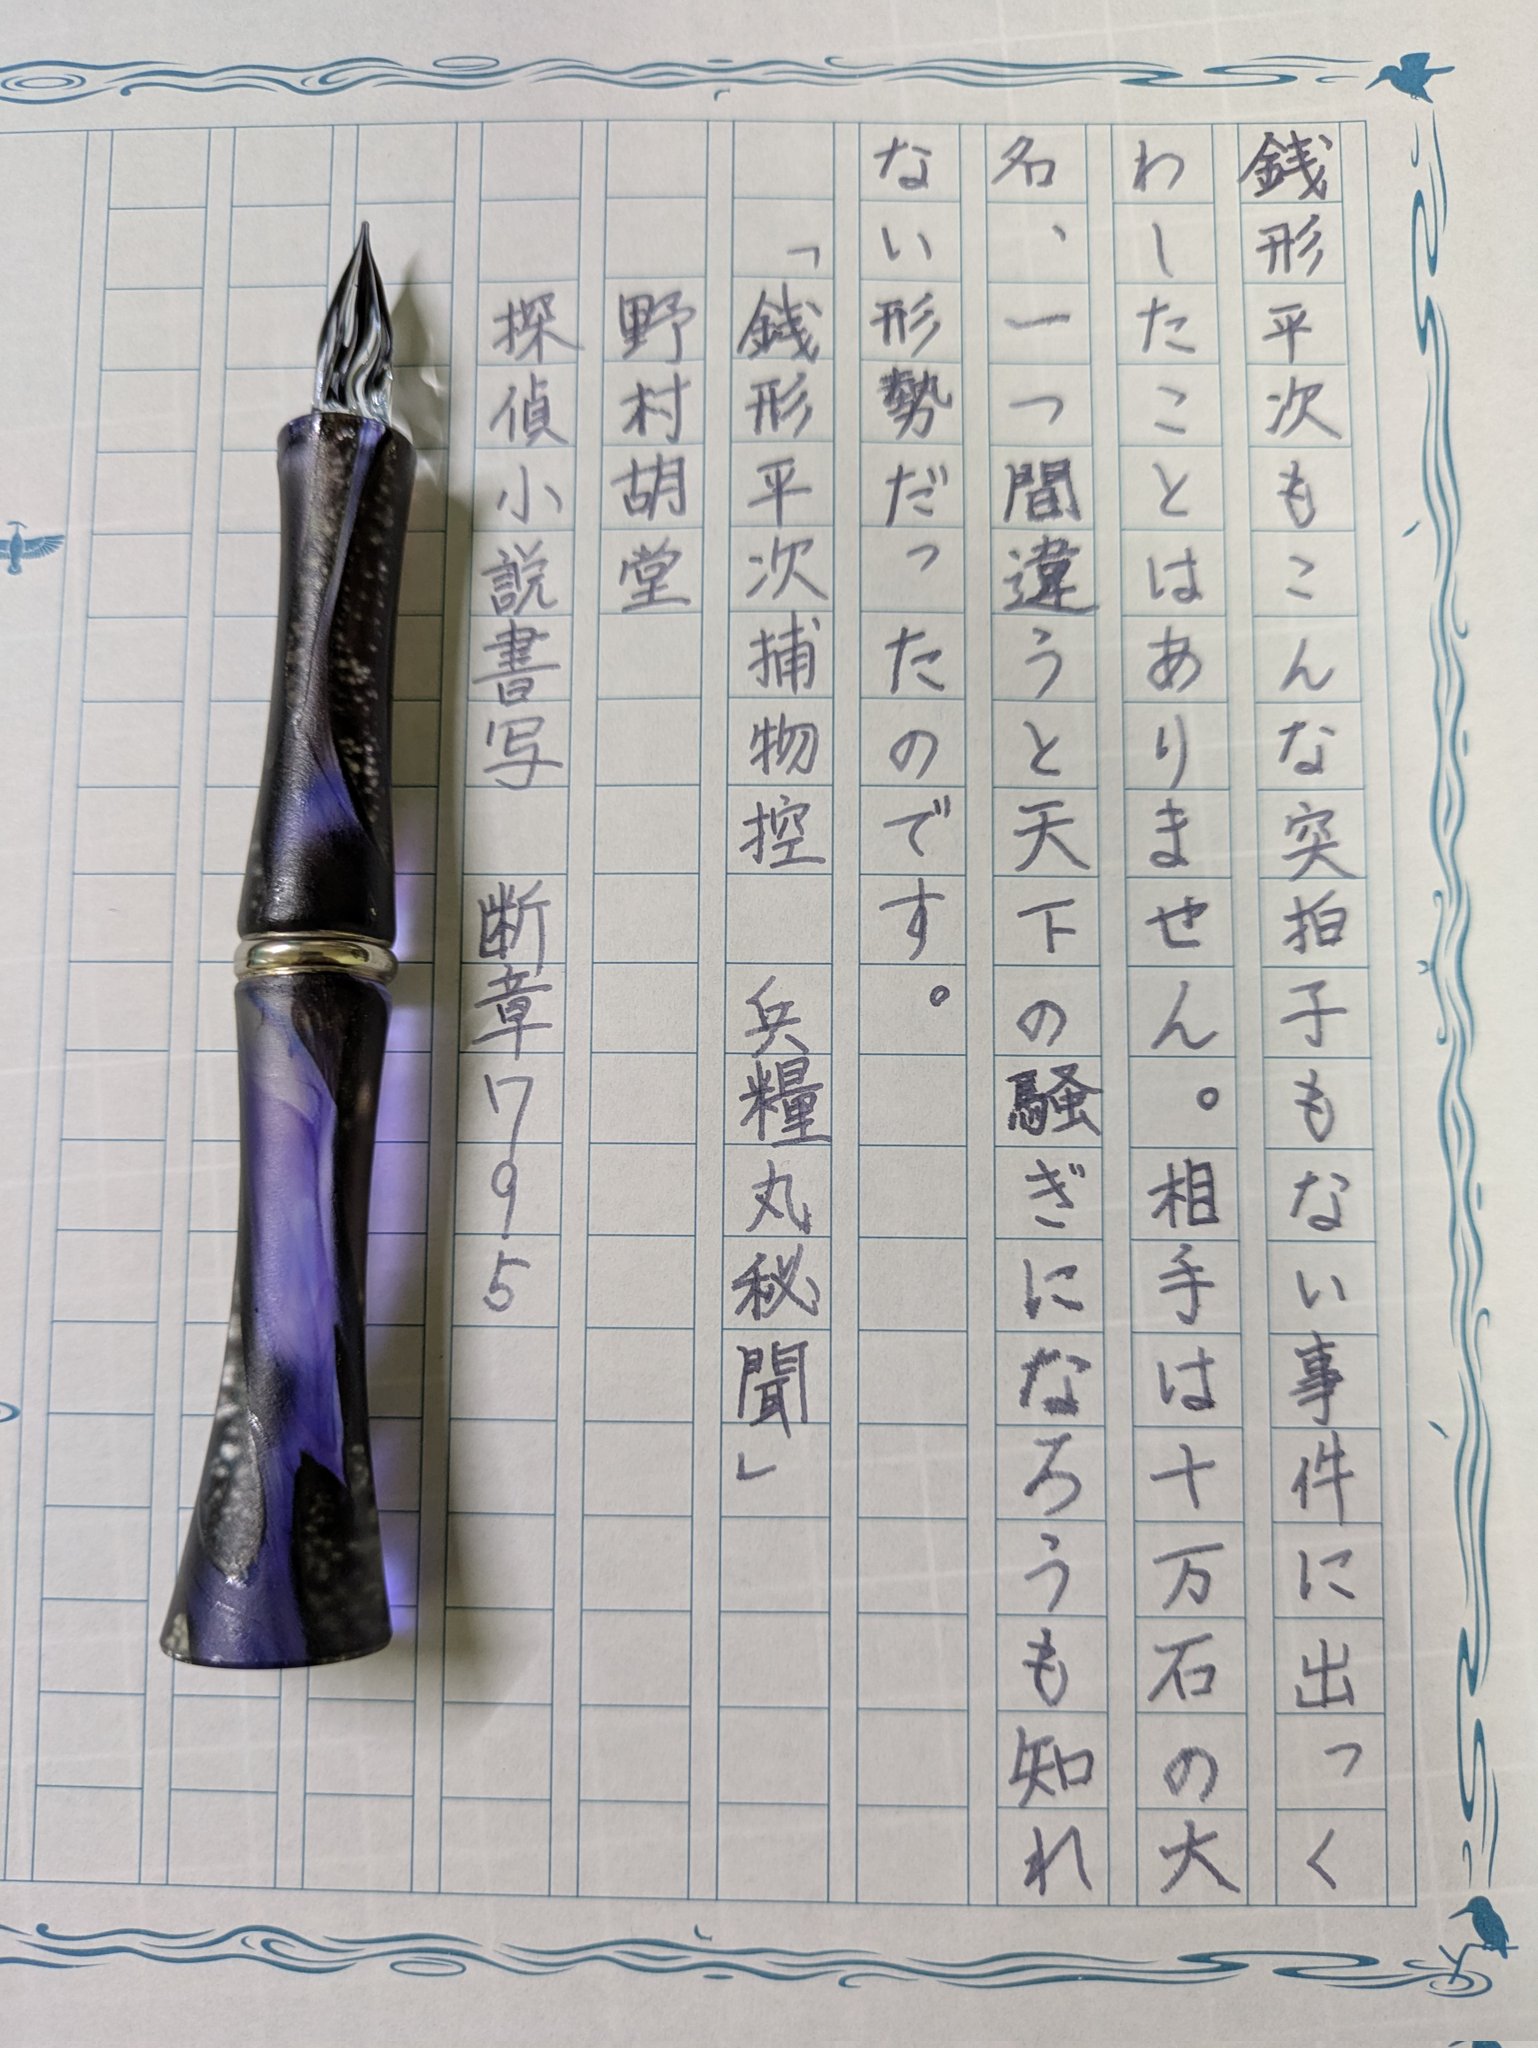 銭形平次もこんな突拍子もない事件に出っく
わしたことはありません。相手は十万石の大
名、一つ間違うと天下の騒ぎになろうも知れ
ない形勢だったのです。
「銭形平次捕物控　兵糧丸秘聞」
野村胡堂
探偵小説書写　断章7795